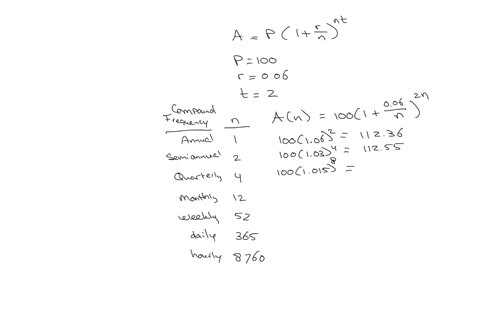 A = P(1 + r/n)^nt
P=100
r = 0.06
t = 2
Compound Frequency n A(n) = 100(1 + 0.06/n)^2n
Annual 1 100(1.06)^2 = 112.36
Semiannual 2 100(1.03)^4 = 112.55
Quarterly 4 100(1.015)^8 =
monthly 12
weekly 52
daily 365
hourly 8760